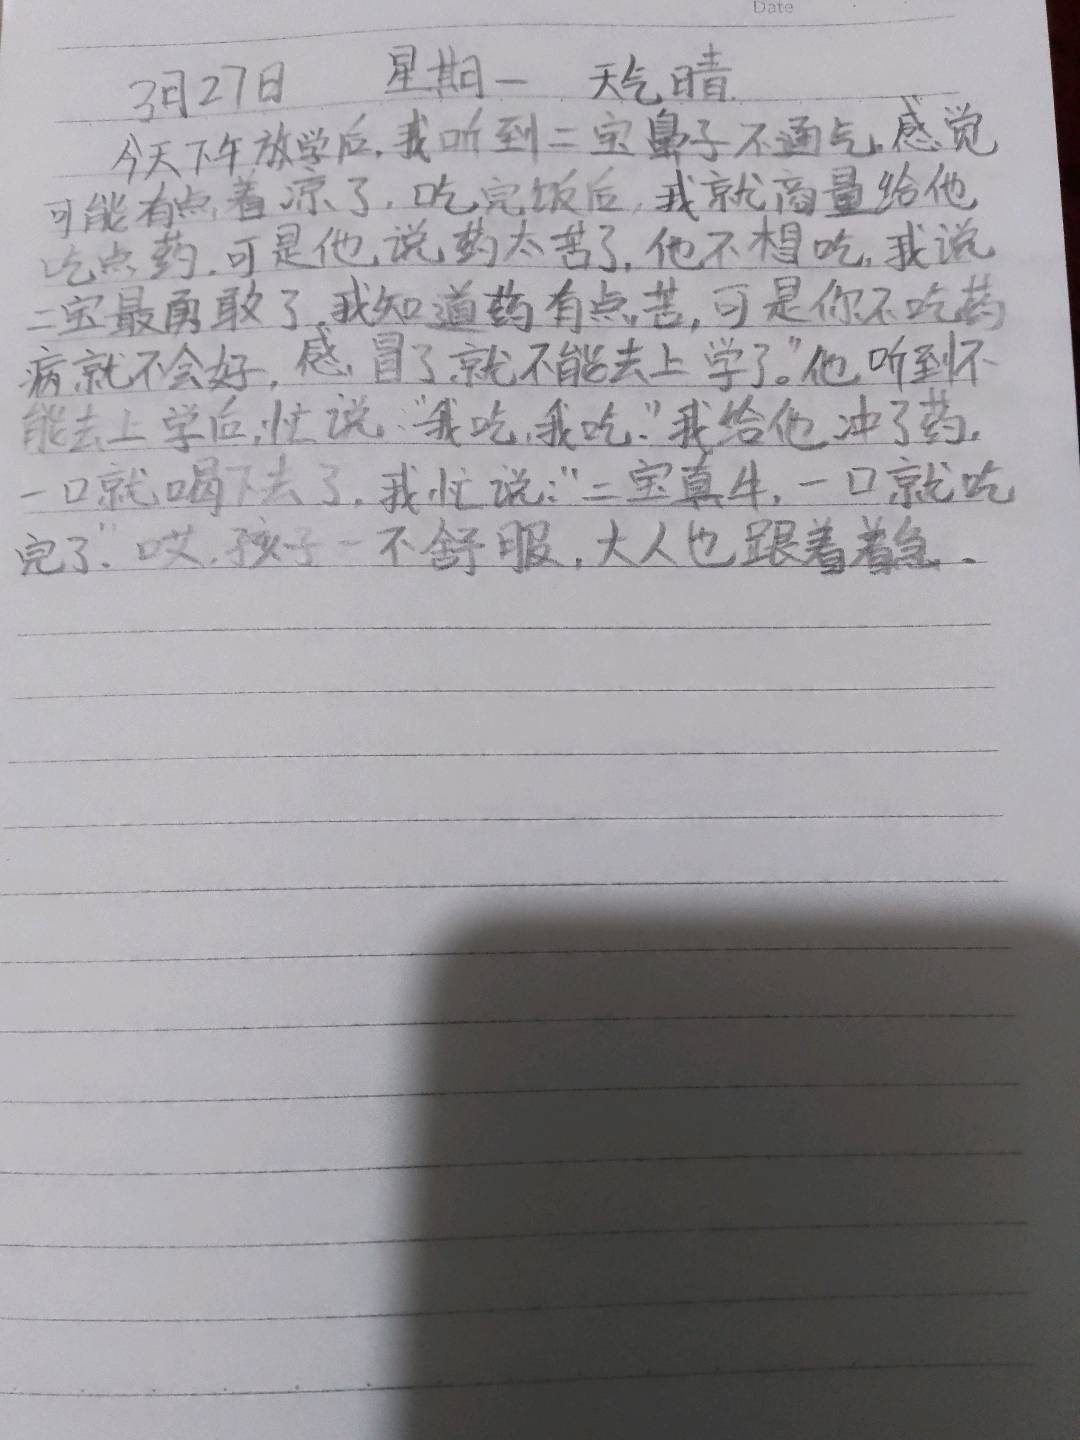 Date
3月27日 星期一 天气晴
今天下午放学后,我听到二宝鼻子不通气,感觉
可能有点着凉了,吃完饭后,我就商量给他
吃点药,可是他说药太苦了,他不想吃,我说
二宝最勇敢了,我知道药有点苦,可是你不吃药
病就不会好,感冒了就不能去上学了。"他听到不
能去上学后,忙说:"我吃,我吃."我给他冲了药,
一口就喝下去了,我忙说:"二宝真牛,一口就吃
完了."哎,孩子一不舒服,大人也跟着着急.